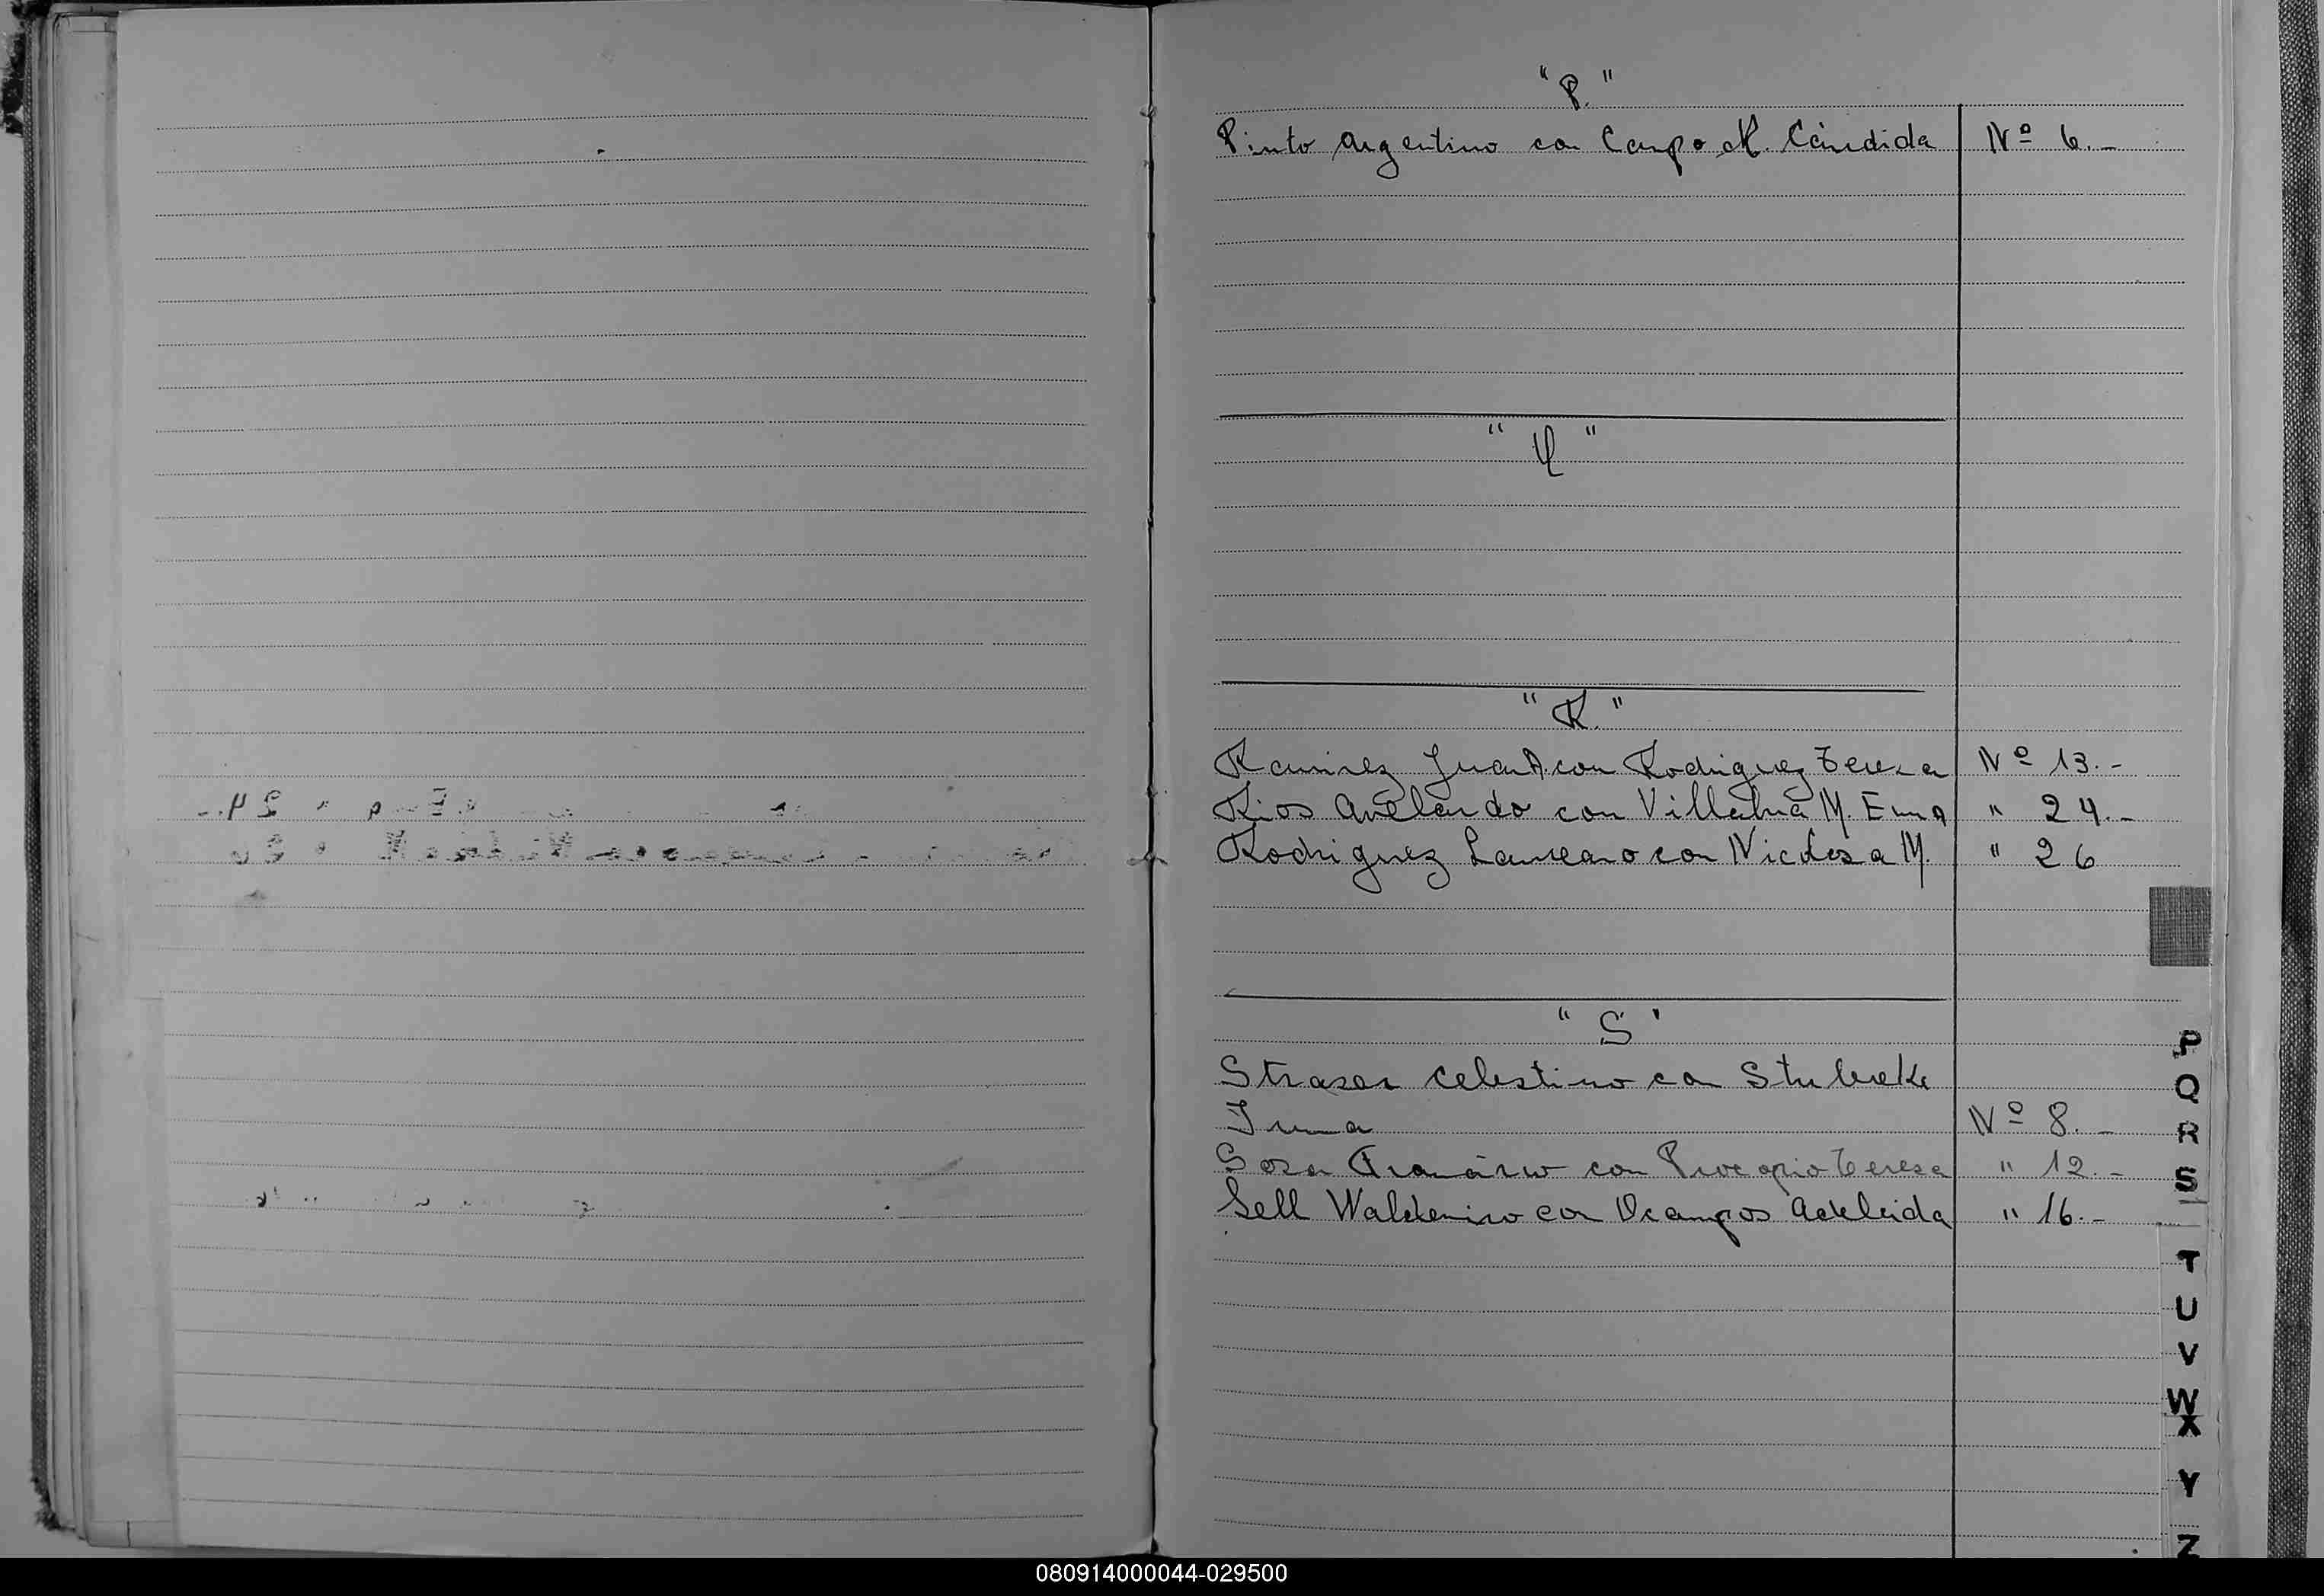 "P."
Pinto Argentino con Campo M. Cándida Nº 6.-
"Q"
"R."
Ramirez Juan A. con Rodriguez Teresa Nº 13.-
Rios Avelardo con Villalva M. Ema " 24.-
Rodriguez Laureano con Nicolasa M. " 26
"S"
Straser Celestino con
Irma Nº 8.-
Sosa con Procopio Teresa " 12.-
Sell Waldemiro con Ocampos Adeleida " 16.-
P
Q
R
S
T
U
V
W
X
Y
Z
080914000044-029500